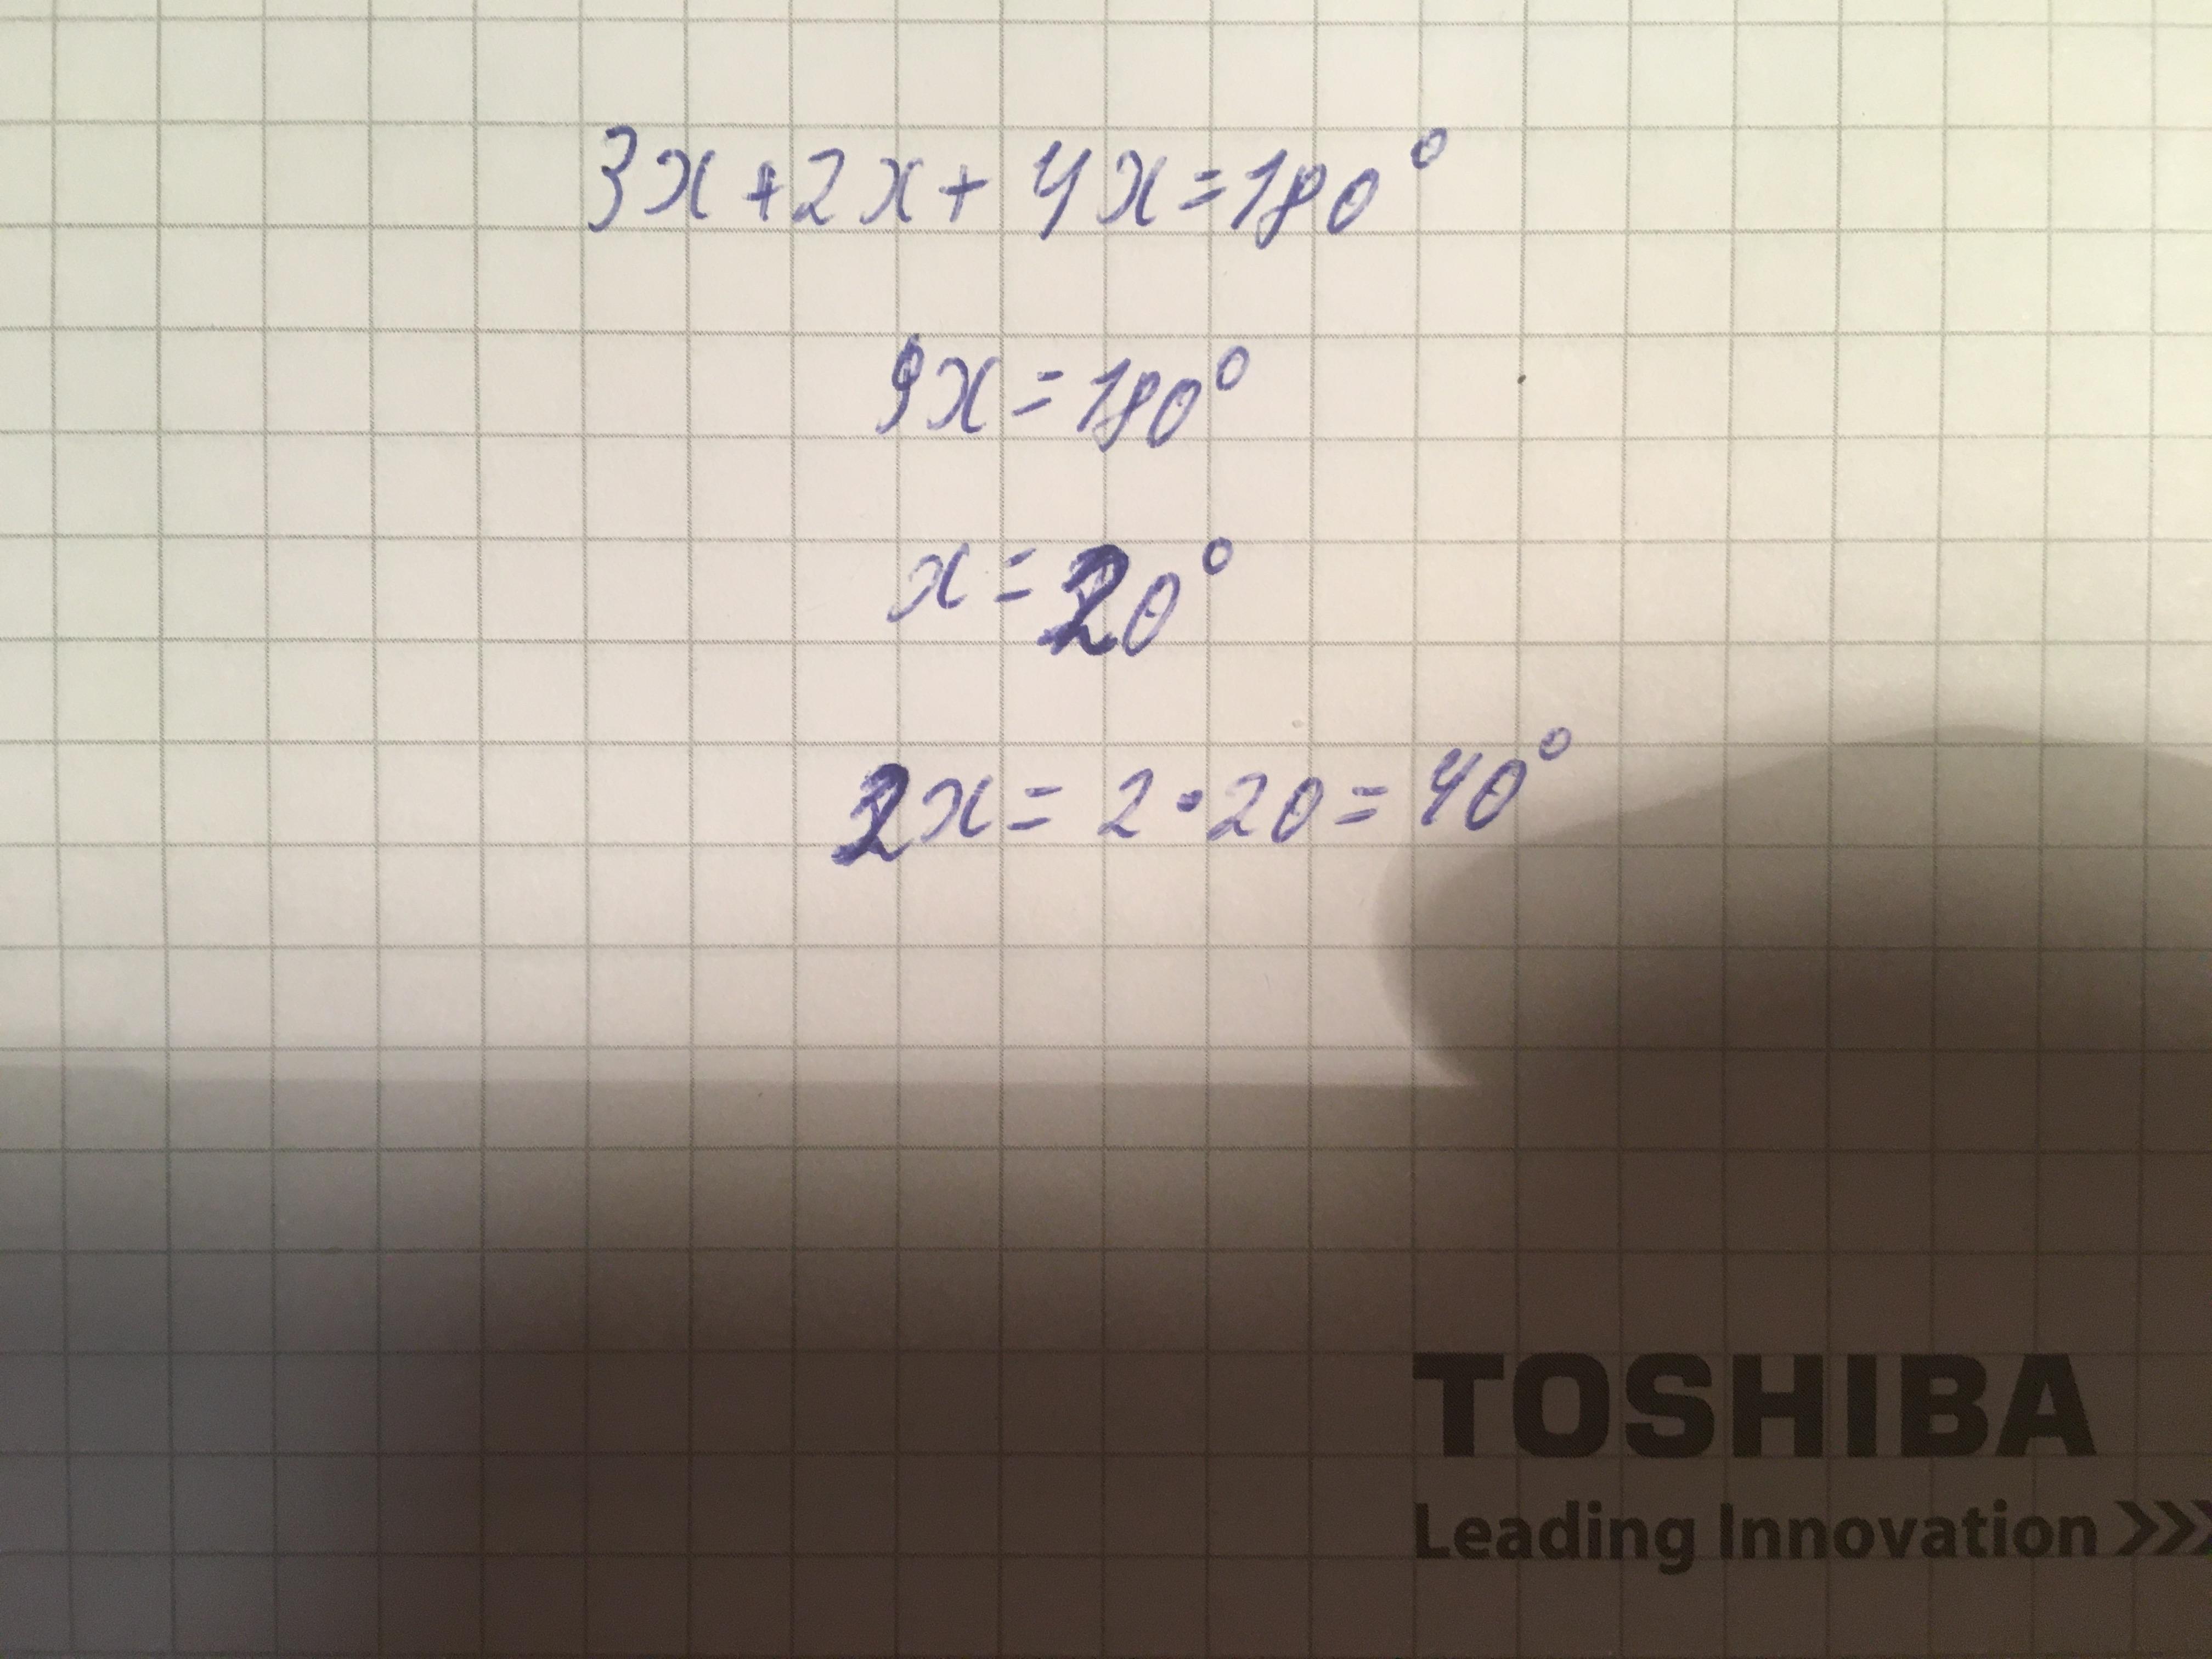 3x+2x+4x=180°
9x=180°
x=20°
2x=2·20=40°
TOSHIBA
Leading Innovation >>>